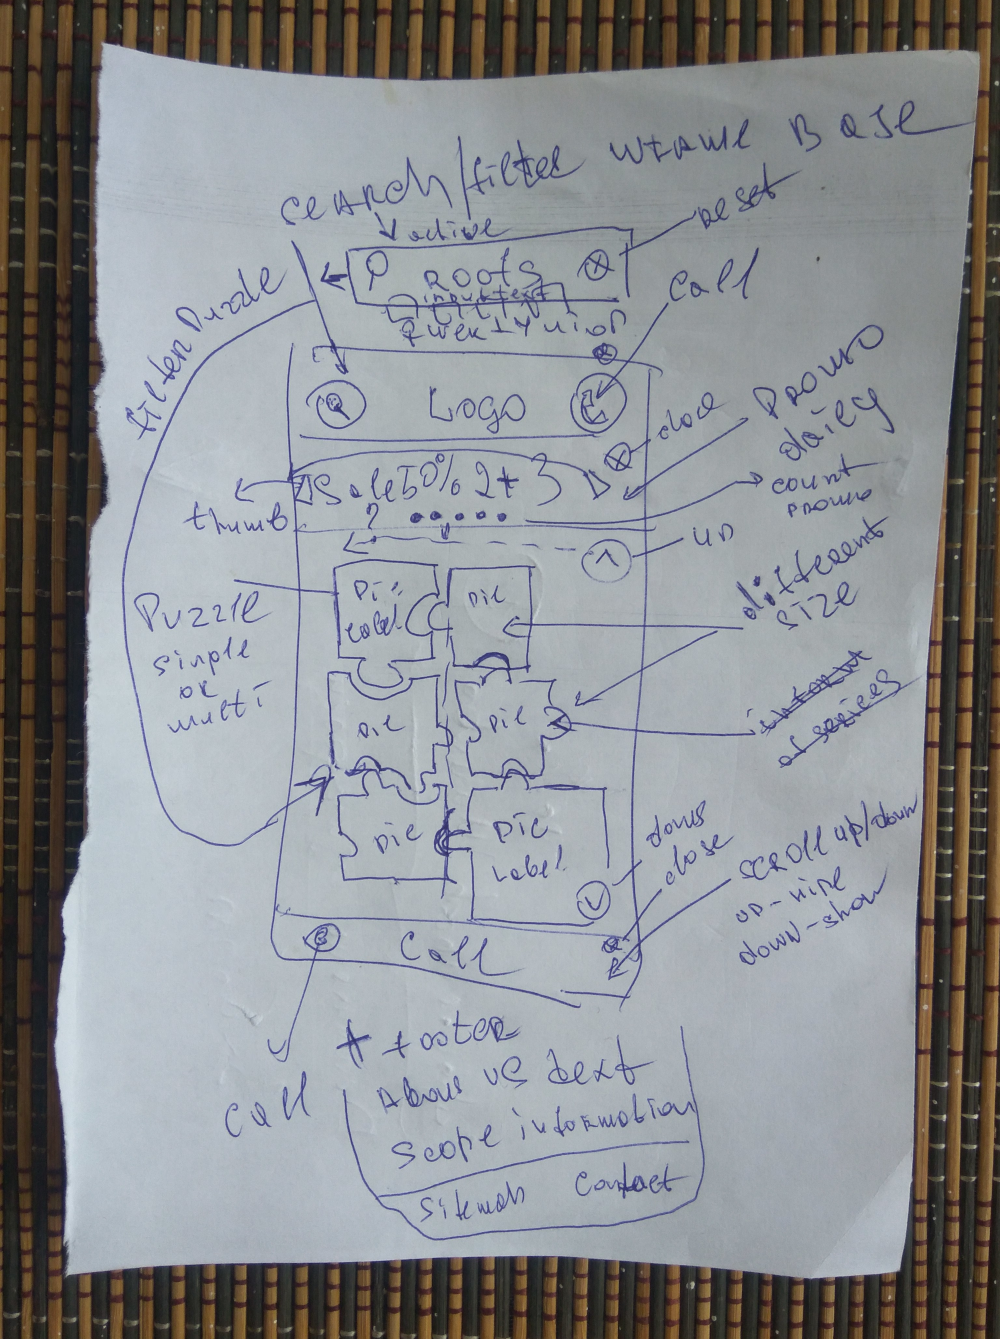 search/filter wrame Base
active
Reset
Roots
input text
Filter Puzzle
Call
Logo
close
Promo
daily
Sale 50% 2+3
thumb
?
count
promo
up
Pic
Label
Pic
different
size
Puzzle
simple
or
multi
Pic
Pic
Pic
Pic
Label
down
close
scroll up/down
up-hide
down-show
Call
Call
+ Footer
About us text
Scope information
Sitemap Contact